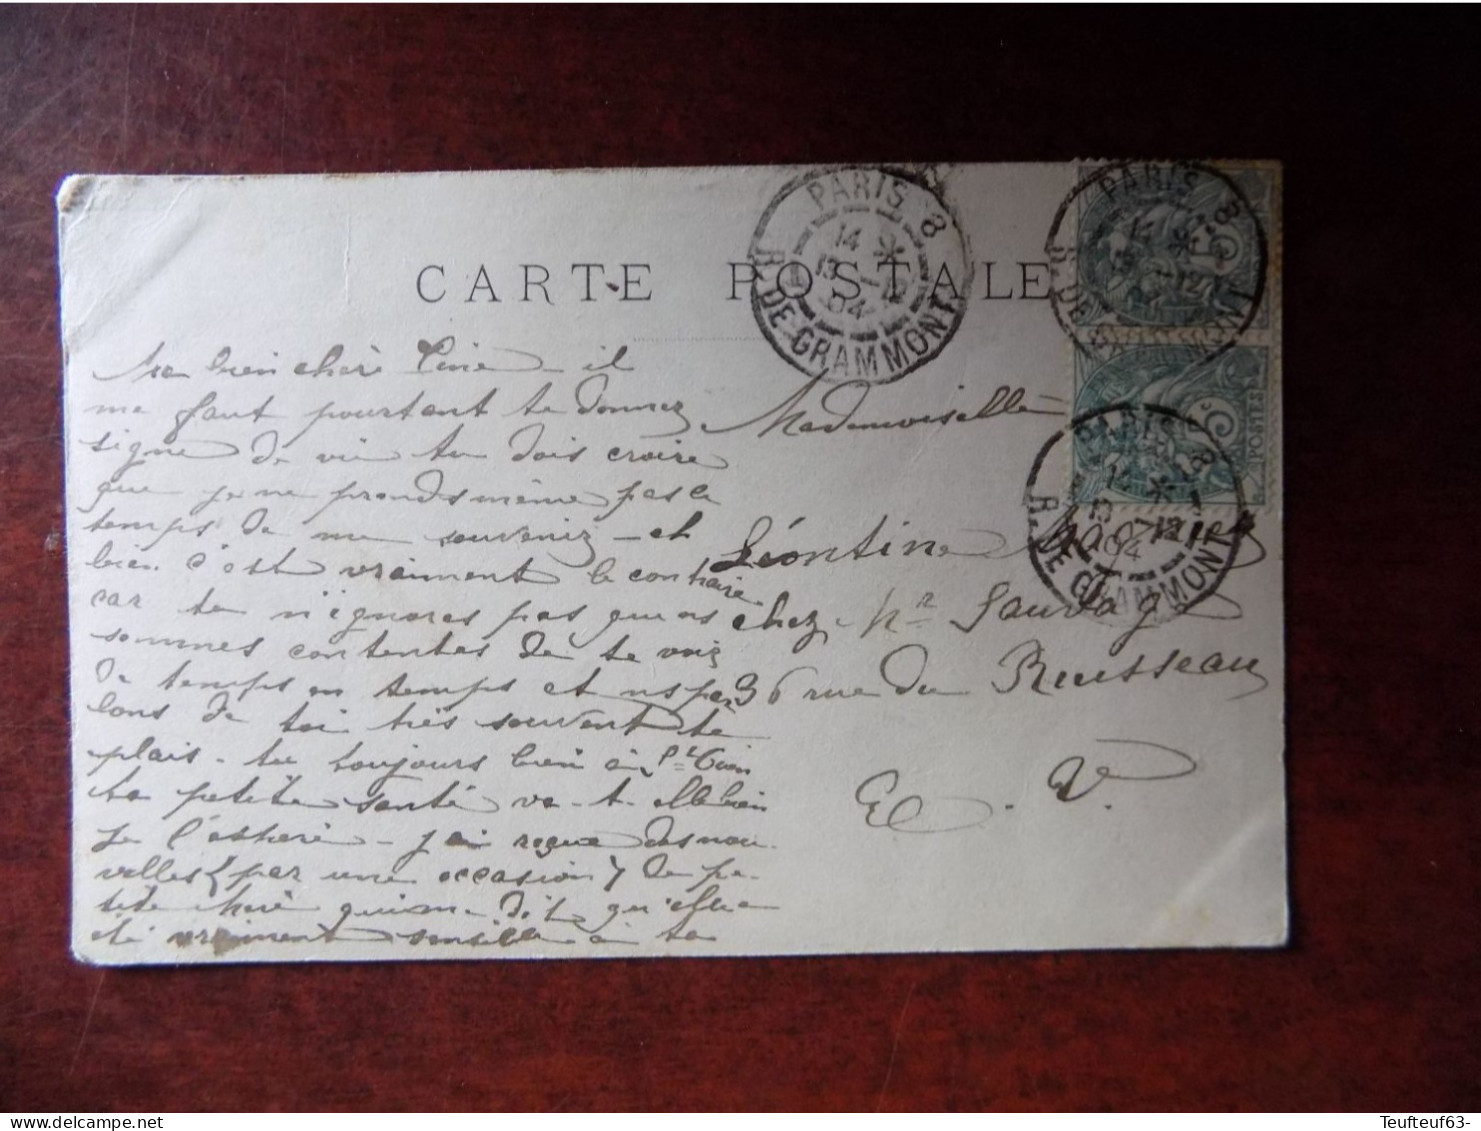 CARTE POSTALE
PARIS 8
14
R. DE GRAMMONT
04
PARIS 8
14
-12
PARIS 8
POSTES
R. DE GRAMMONT
Ma bien chère Tine - il
me faut pourtant te donner
signe de vie tu dois croire
que je ne prends même pas le
temps de me souvenir - et
bien c'est vraiment le contraire
car tu n'ignores pas que ns
sommes contentes de te voir
de temps en temps et ns par
lons de toi très souvent te
plais - tu toujours bien à
ta petite santé va-t-elle bien
je l'espère - j'ai reçue des nou-
velles (par une occasion) de pe-
tite chère qui me dit qu'elle a
été vraiment sensible à ta
Mademoiselle
Léontine
chez Mr Sauvage
36 rue du Ruisseau
E. V.
Teufteuf63-